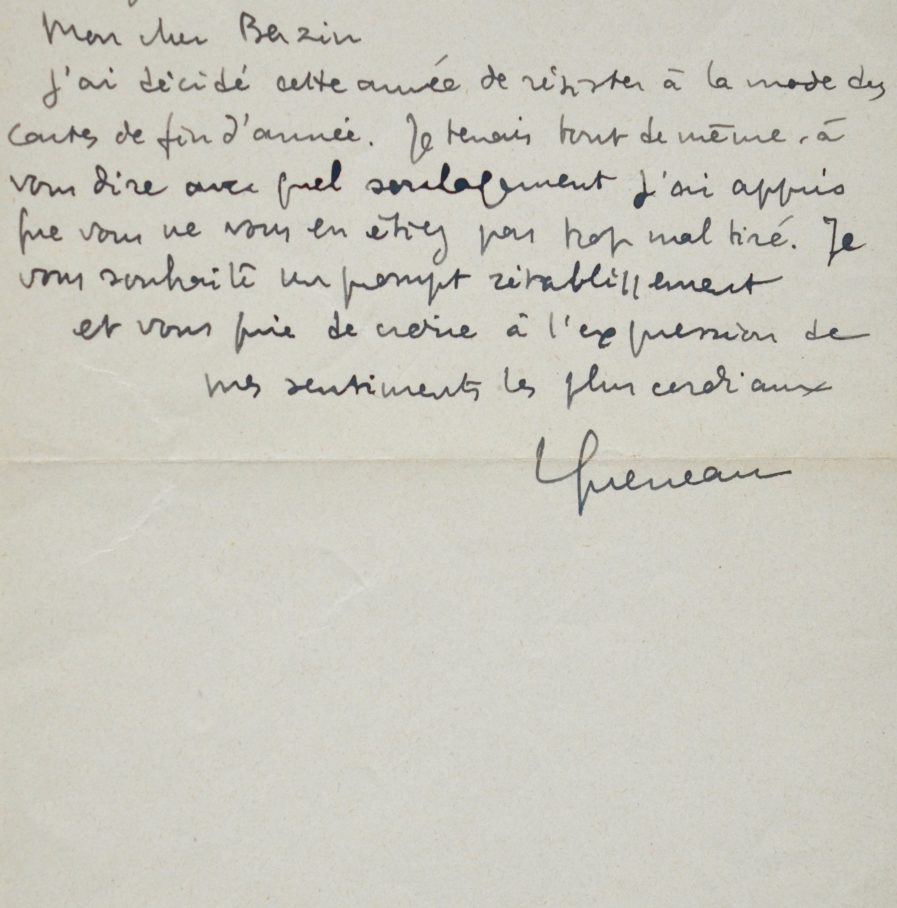 Mon cher Berzin
J'ai décidé cette année de résister à la mode des
cartes de fin d'année. Je tenais tout de même à
vous dire avec quel soulagement j'ai appris
que vous ne vous en étiez pas trop mal tiré. Je
vous souhaite un prompt rétablissement
et vous prie de croire à l'expression de
mes sentiments les plus cordiaux
Queneau